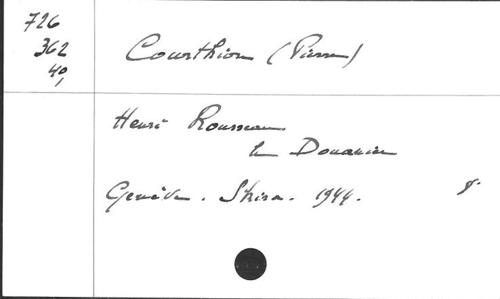 726
362
40,
Courthion (Pierre)
Henri Rousseau
le Douanier
Genève. Skira. 1944. 8.